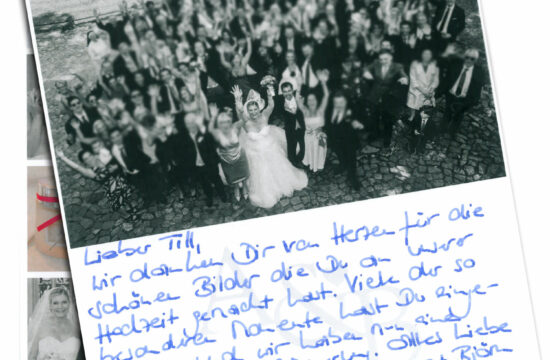 Lieber Till,
wir danken Dir von Herzen für die
schönen Bilder die Du an unserer
Hochzeit gemacht hast. Viele der so
besonderen Momente hast Du einge-
wir haben nun eine
Alles Liebe
Björn